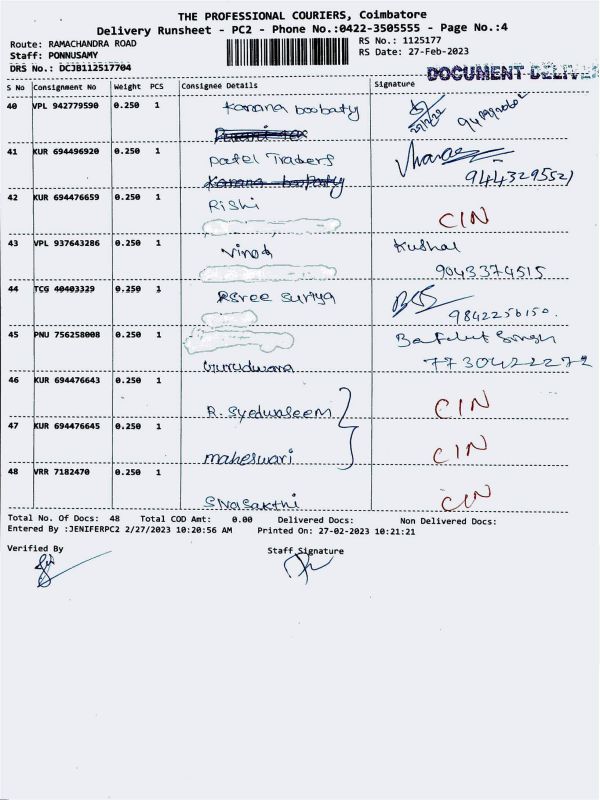 THE PROFESSIONAL COURIERS, Coimbatore
Delivery Runsheet - PC2 - Phone No.:0422-3505555 - Page No.:4
Route: RAMACHANDRA ROAD
Staff: PONNUSAMY
DRS No.: DCJB112517704
RS No.: 1125177
RS Date: 27-Feb-2023
DOCUMENT DELIVE
S No Consignment No Weight PCS Consignee Details Signature
40 VPL 942779590 0.250 1 Karana boobaty
41 KUR 694496920 0.250 1 Patel Traders
Karana boobaty
9443295521
42 KUR 694476659 0.250 1 Rishi CIN
43 VPL 937643286 0.250 1 Vinod Kushal
9043374515
44 TCG 40403329 0.250 1 Sree Suriya
9842256150.
45 PNU 756258008 0.250 1 Gurudwara Singh
7730422272
46 KUR 694476643 0.250 1 R. Syedwaseem CIN
47 KUR 694476645 0.250 1 maheswari CIN
48 VRR 7182470 0.250 1 SivaSakthi CIN
Total No. Of Docs: 48 Total COD Amt: 0.00 Delivered Docs: Non Delivered Docs:
Entered By :JENIFERPC2 2/27/2023 10:20:56 AM Printed On: 27-02-2023 10:21:21
Verified By Staff Signature